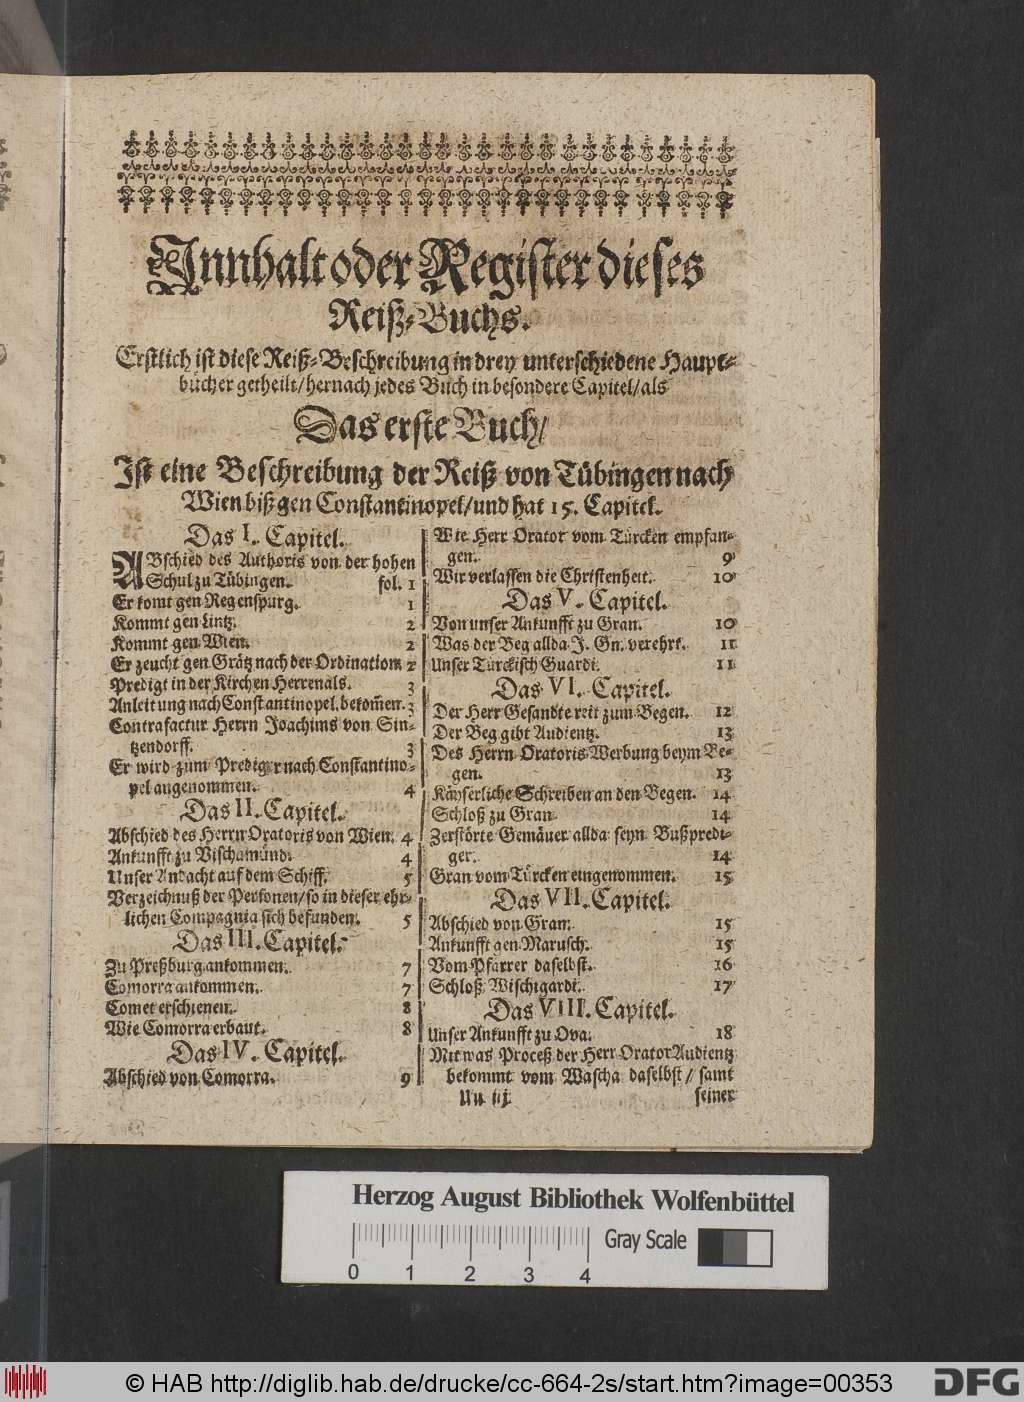 Innhalt oder Register dieses
Reiß-Buchs.
Erstlich ist diese Reiß-Beschreibung in drey unterschiedene Haupt-
bücher getheilt/ hernach jedes Buch in besondere Capitel/ als
Das erste Buch/
Ist eine Beschreibung der Reiß von Tübingen nach
Wien biß gen Constantinopel/ und hat 15. Capitel.
Das I. Capitel.
ABschied des Authoris von der hohen
Schul zu Tübingen. fol. 1
Er komt gen Regenspurg. 1
Kommt gen Lintz. 2
Kommt gen Wien. 2
Er zeucht gen Grätz nach der Ordination. 2
Predigt in der Kirchen Herrenals. 3
Anleitung nach Constantinopel bekom̃en. 3
Contrafactur Herrn Joachims von Sin-
tzendorff. 3
Er wird zum Prediger nach Constantino-
pel angenommen. 4
Das II. Capitel.
Abschied des Herrn Oratoris von Wien. 4
Ankunfft zu Vischamünd. 4
Unser Andacht auf dem Schiff. 5
Verzeichnuß der Personen/ so in dieser ehr-
lichen Compagnia sich befunden. 5
Das III. Capitel.
Zu Preßburg ankommen. 7
Comorra ankommen. 7
Comet erschienen. 8
Wie Comorra erbaut. 8
Das IV. Capitel.
Abschied von Comorra. 9
Wie Herr Orator vom Türcken empfan-
gen. 9
Wir verlassen die Christenheit. 10
Das V. Capitel.
Von unser Ankunfft zu Gran. 10
Was der Beg allda J. Gn. verehrt. 11
Unser Türckisch Guardi. 11
Das VI. Capitel.
Der Herr Gesandte reit zum Begen. 12
Der Beg gibt Audientz. 13
Des Herrn Oratoris Werbung beym Be-
gen. 13
Käyserliche Schreiben an den Begen. 14
Schloß zu Gran. 14
Zerstörte Gemäuer allda seyn Bußpredi-
ger. 14
Gran vom Türcken eingenommen. 15
Das VII. Capitel.
Abschied von Gran. 15
Ankunfft gen Marusch. 15
Vom Pfarrer daselbst. 16
Schloß Wischigardi. 17
Das VIII. Capitel.
Unser Ankunfft zu Ova. 18
Mit was Proceß der Herr Orator Audientz
bekommt vom Wascha daselbst/ samt
Uu iij seiner
Herzog August Bibliothek Wolfenbüttel
Gray Scale
0 1 2 3 4
© HAB http://diglib.hab.de/drucke/cc-664-2s/start.htm?image=00353
DFG